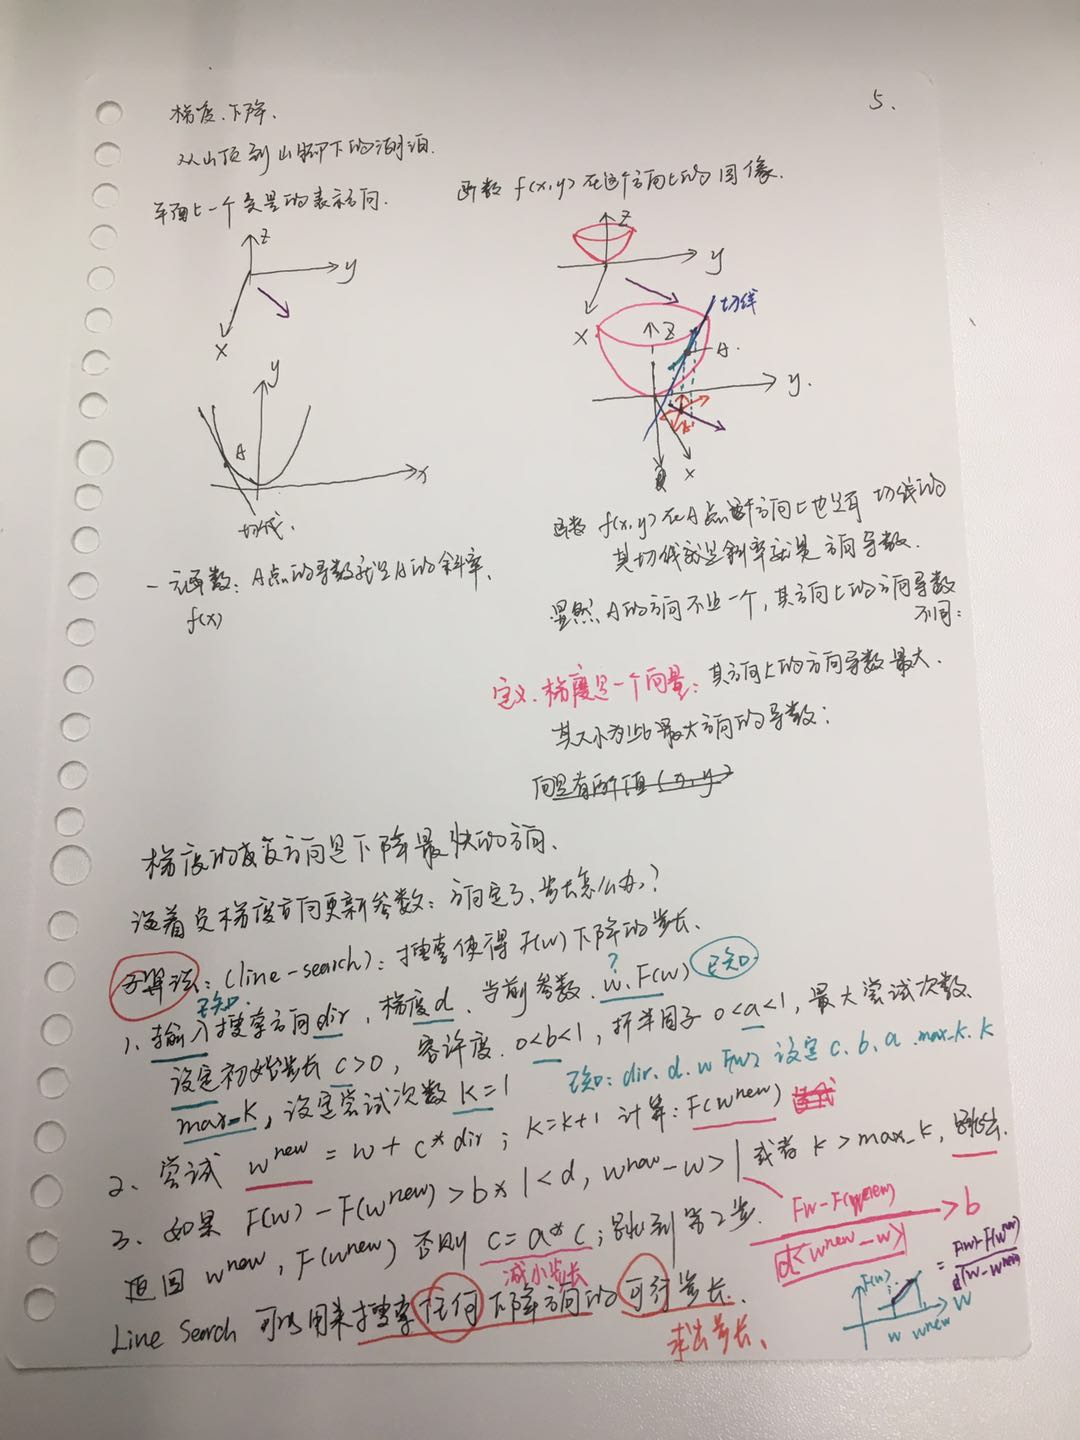 5.
梯度、下降.
从山顶到山脚下的湖泊.
平面上一个变量的表示方向.
z
y
x
y
A
x
切线.
一元函数: A点的导数就是A的斜率.
f(x)
函数 f(x,y) 在这个方向上的图像.
z
y
x
切线
z
A
y.
x
函数 f(x,y)在A点这个方向上也是有 切线的
其切线就是斜率就是 方向导数.
显然 A的方向不止一个, 其方向上的方向导数
不同:
定义. 梯度是一个向量: 其方向上的方向导数最大.
其大小为此最大方向的导数:
向量有两个值(x,y)
梯度的负方向是下降最快的方向.
沿着负梯度方向更新参数: 方向定了、步长怎么办?
子算法: (line-search): 搜索使得 F(w)下降的步长.
已知.
?
已知
1、输入搜索方向dir, 梯度d、当前参数 w、F(w)
设定初始步长 c>0, 容许度 0<b<1, 折半因子 0<a<1, 最大尝试次数
max_k, 设定尝试次数 k=1
已知: dir、d、w F(w) 设定 c、b、a、max_k、k
2、尝试 w^new = w + c*dir; k=k+1 计算: F(w^new)
3、如果 F(w)-F(w^new) > b*|<d, w^new-w>| 或者 k>max_k,
返回 w^new, F(w^new) 否则 c=a*c; 跳到第2步.
减小步长
Fw-F(w^new)
d<w^new-w>
>b
F(w)
w
w w^new
=
F(w)-F(w^new)
d(w-w^new)
Line Search 可以用来搜索任何下降方向的可行步长.
求出步长、